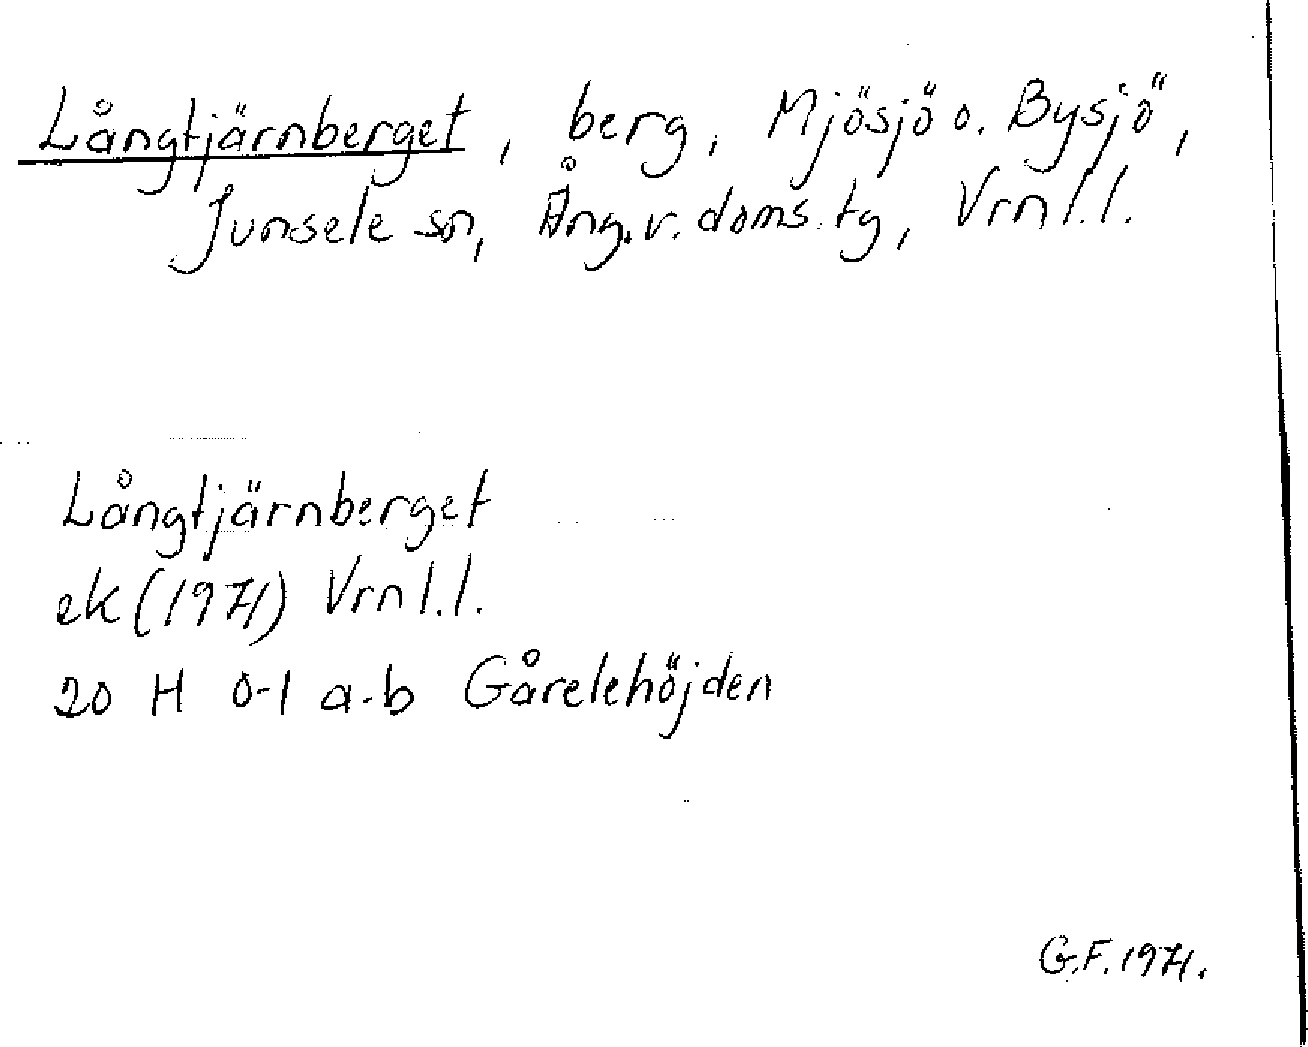 Långtjärnberget, berg, Mjösjö o. Bysjö,
Junsele sn, Ång.v. doms. tg, Vrnl.l.
Långtjärnberget
ek (1971) Vrnl.l.
20 H 0-1 a-b Gårelehöjden
G.F. 1971.